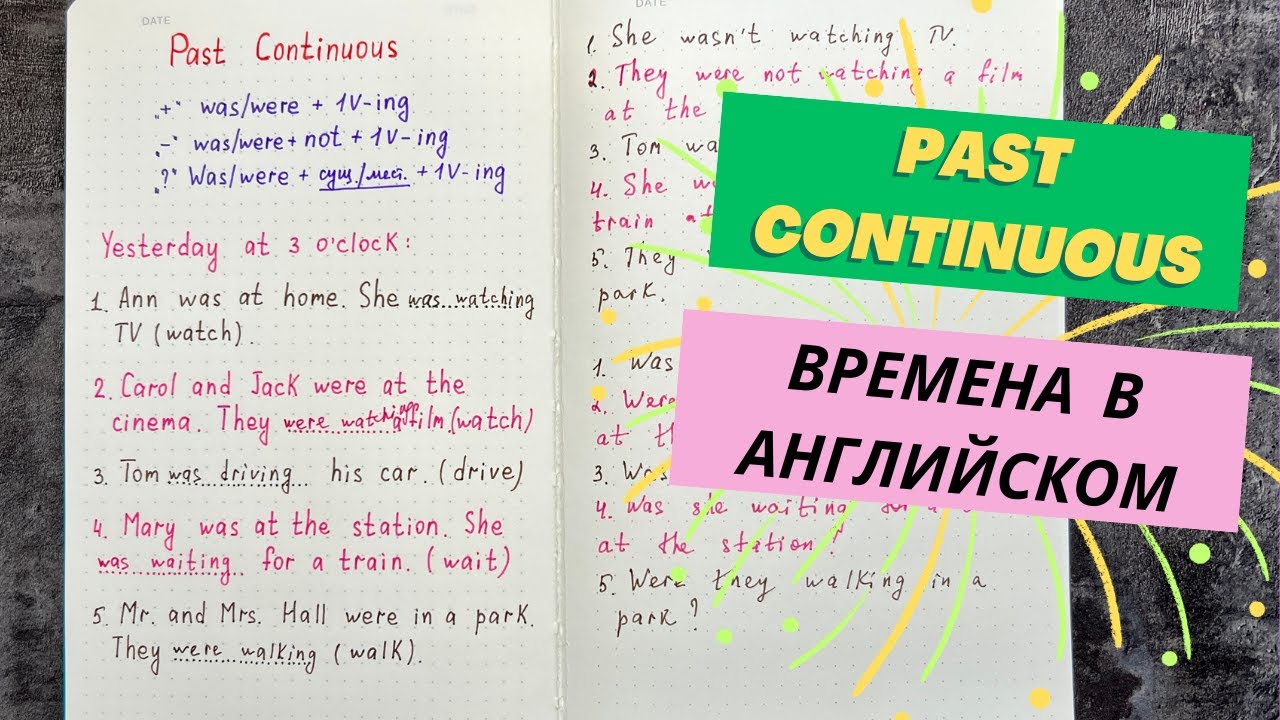 DATE
Past Continuous
"+" was/were + 1V-ing
"-" was/were + not + 1V-ing
"?" Was/were + сущ./мест. + 1V-ing
Yesterday at 3 o'clock:
1. Ann was at home. She was watching
TV (watch).
2. Carol and Jack were at the
cinema. They were watching a film. (watch)
3. Tom was driving his car. (drive)
4. Mary was at the station. She
was waiting for a train. (wait)
5. Mr. and Mrs. Hall were in a park.
They were walking (walk).
DATE
1. She wasn't watching TV.
2. They were not watching a film
at the
3. Tom
4. She
train
5. They
park.
1. Was
2. Were
at
3. Was
4. Was she waiting for a
at the station?
5. Were they walking in a
park?
PAST
CONTINUOUS
ВРЕМЕНА В
АНГЛИЙСКОМ